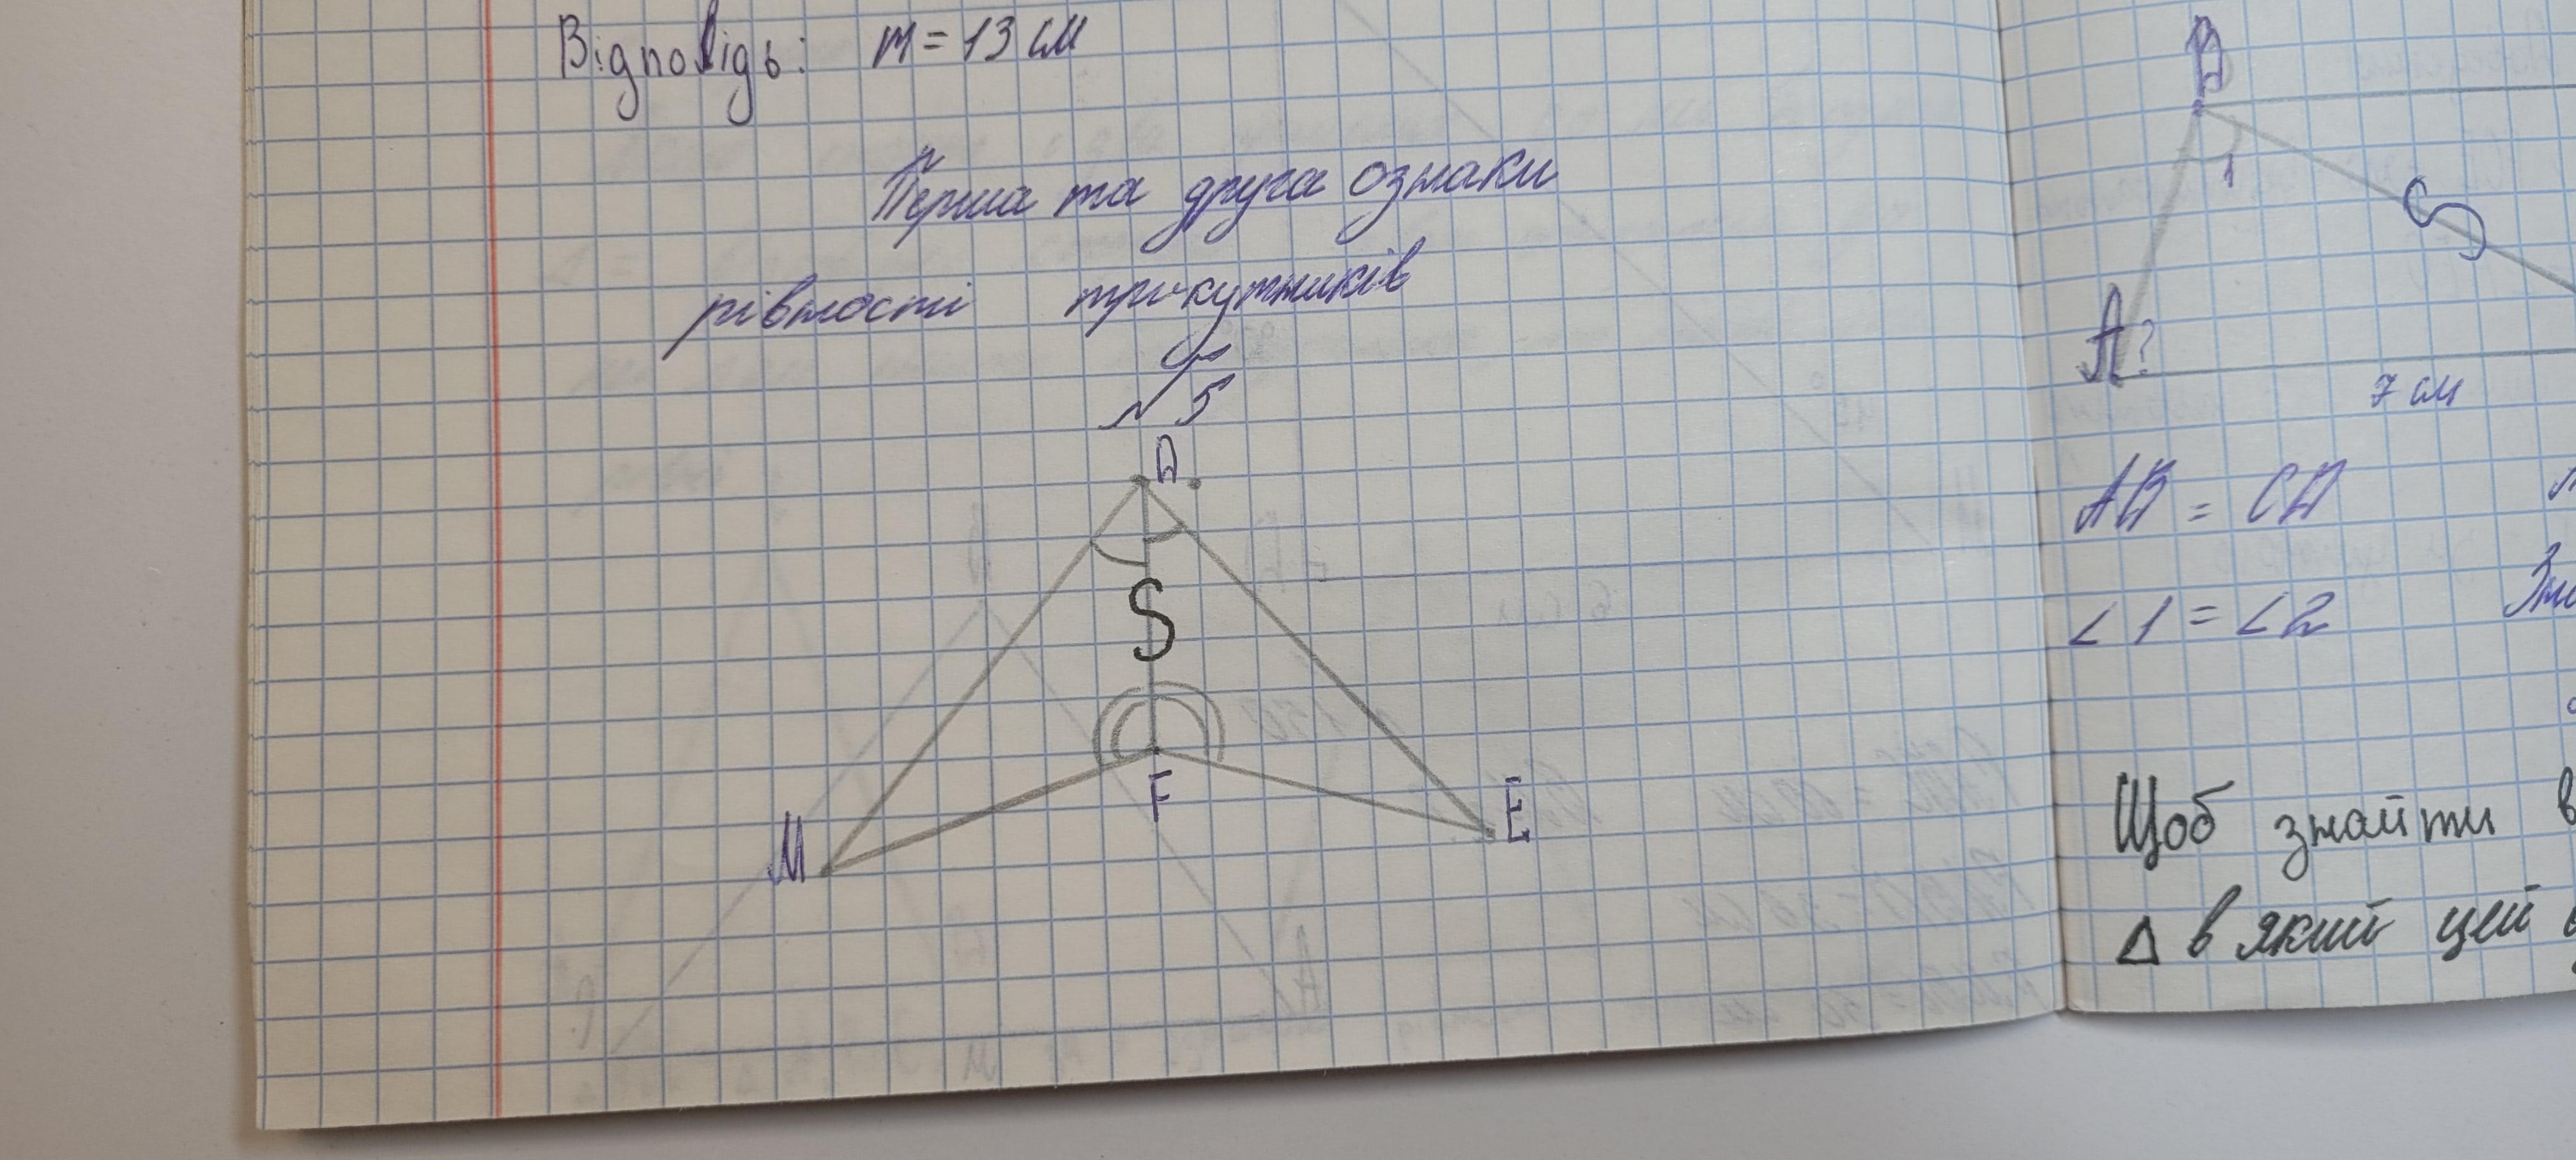 Відповідь: m = 13 см
Перша та друга ознаки
рівності трикутників
№5
D
S
F
M
E
1
S
A?
7 см
AB = CD
∠1 = ∠2
Щоб знайти в
Δ в який цей